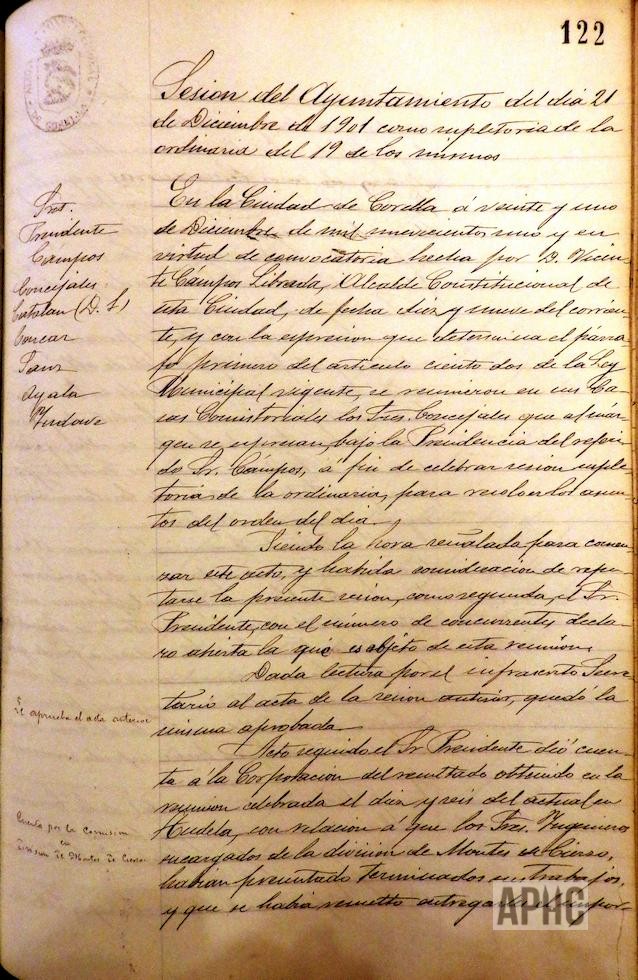 122
Sesion del Ayuntamiento del dia 21
de Diciembre de 1901 como supletoria de la
ordinaria del 19 de los mismos
Sres.
Presidente
Campos
Concejales
Catalan (D. L)
Sanz
Ayala
En la Ciudad de Corella á veinte y uno
de Diciembre de mil novecientos uno y en
virtud de convocatoria hecha por D. Vicen-
te Campos Librada, Alcalde Constitucional de
esta Ciudad, de fecha diez y nueve del corrien-
te, y con la espresion que determina el parra-
fo primero del articulo ciento dos de la Ley
Municipal vigente, se reunieron en sus Ca-
sas Consistoriales los Sres. Concejales que al mar-
gen se espresan, bajo la Presidencia del referi-
do Sr. Campos, á fin de celebrar sesion suple-
toria de la ordinaria, para resolver los asun-
tos del orden del dia.
Siendo la hora señalada para comen-
zar este acto, y habida consideracion de repu-
tarse la presente sesion, como segunda, el Sr.
Presidente, con el número de concurrentes decla-
ró abierta la que es objeto de esta reunion.
Se aprueba el acta anterior
Dada lectura por el infrascrito Secre-
tario al acta de la sesion anterior, quedó la
misma aprobada.
Cuenta por la comision
en
division de Montes de Cierzo
Acto seguido el Sr Presidente dió cuen-
ta á la Corporacion del resultado obtenido en la
reunion celebrada el diez y seis del actual en
Tudela, con relacion á que los Sres. Ingenieros
encargados de la division de Montes de Cierzo,
habian presentado terminados sus trabajos,
y que se habia resuelto entregarles el impor-
APHC